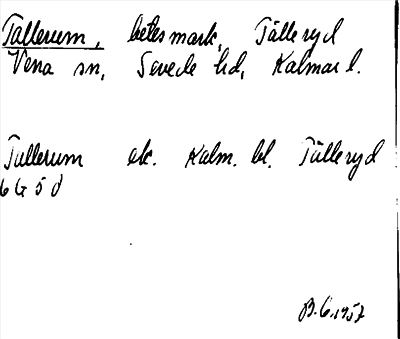 Tallerum, betesmark, Tälleryd
Vena sn, Sevede hd, Kalmar l.
Tallerum ek. Kalm. bl. Tälleryd
6 G 5 d
B.G. 1957